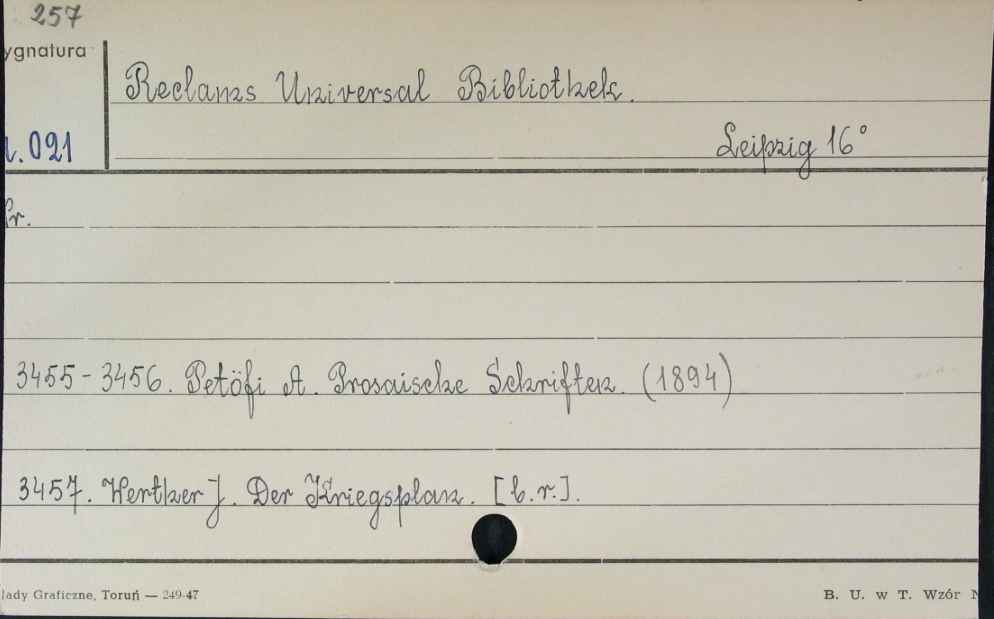 257
ygnatura
Reclams Universal Bibliothek.
.021
Leipzig 16°
Nr.
3455-3456. Petöfi A. Prosaische Schriften. (1894)
3457. Werther J. Der Kriegsplan. [b.r.].
lady Graficzne, Toruń — 249-47
B. U. w T. Wzór N